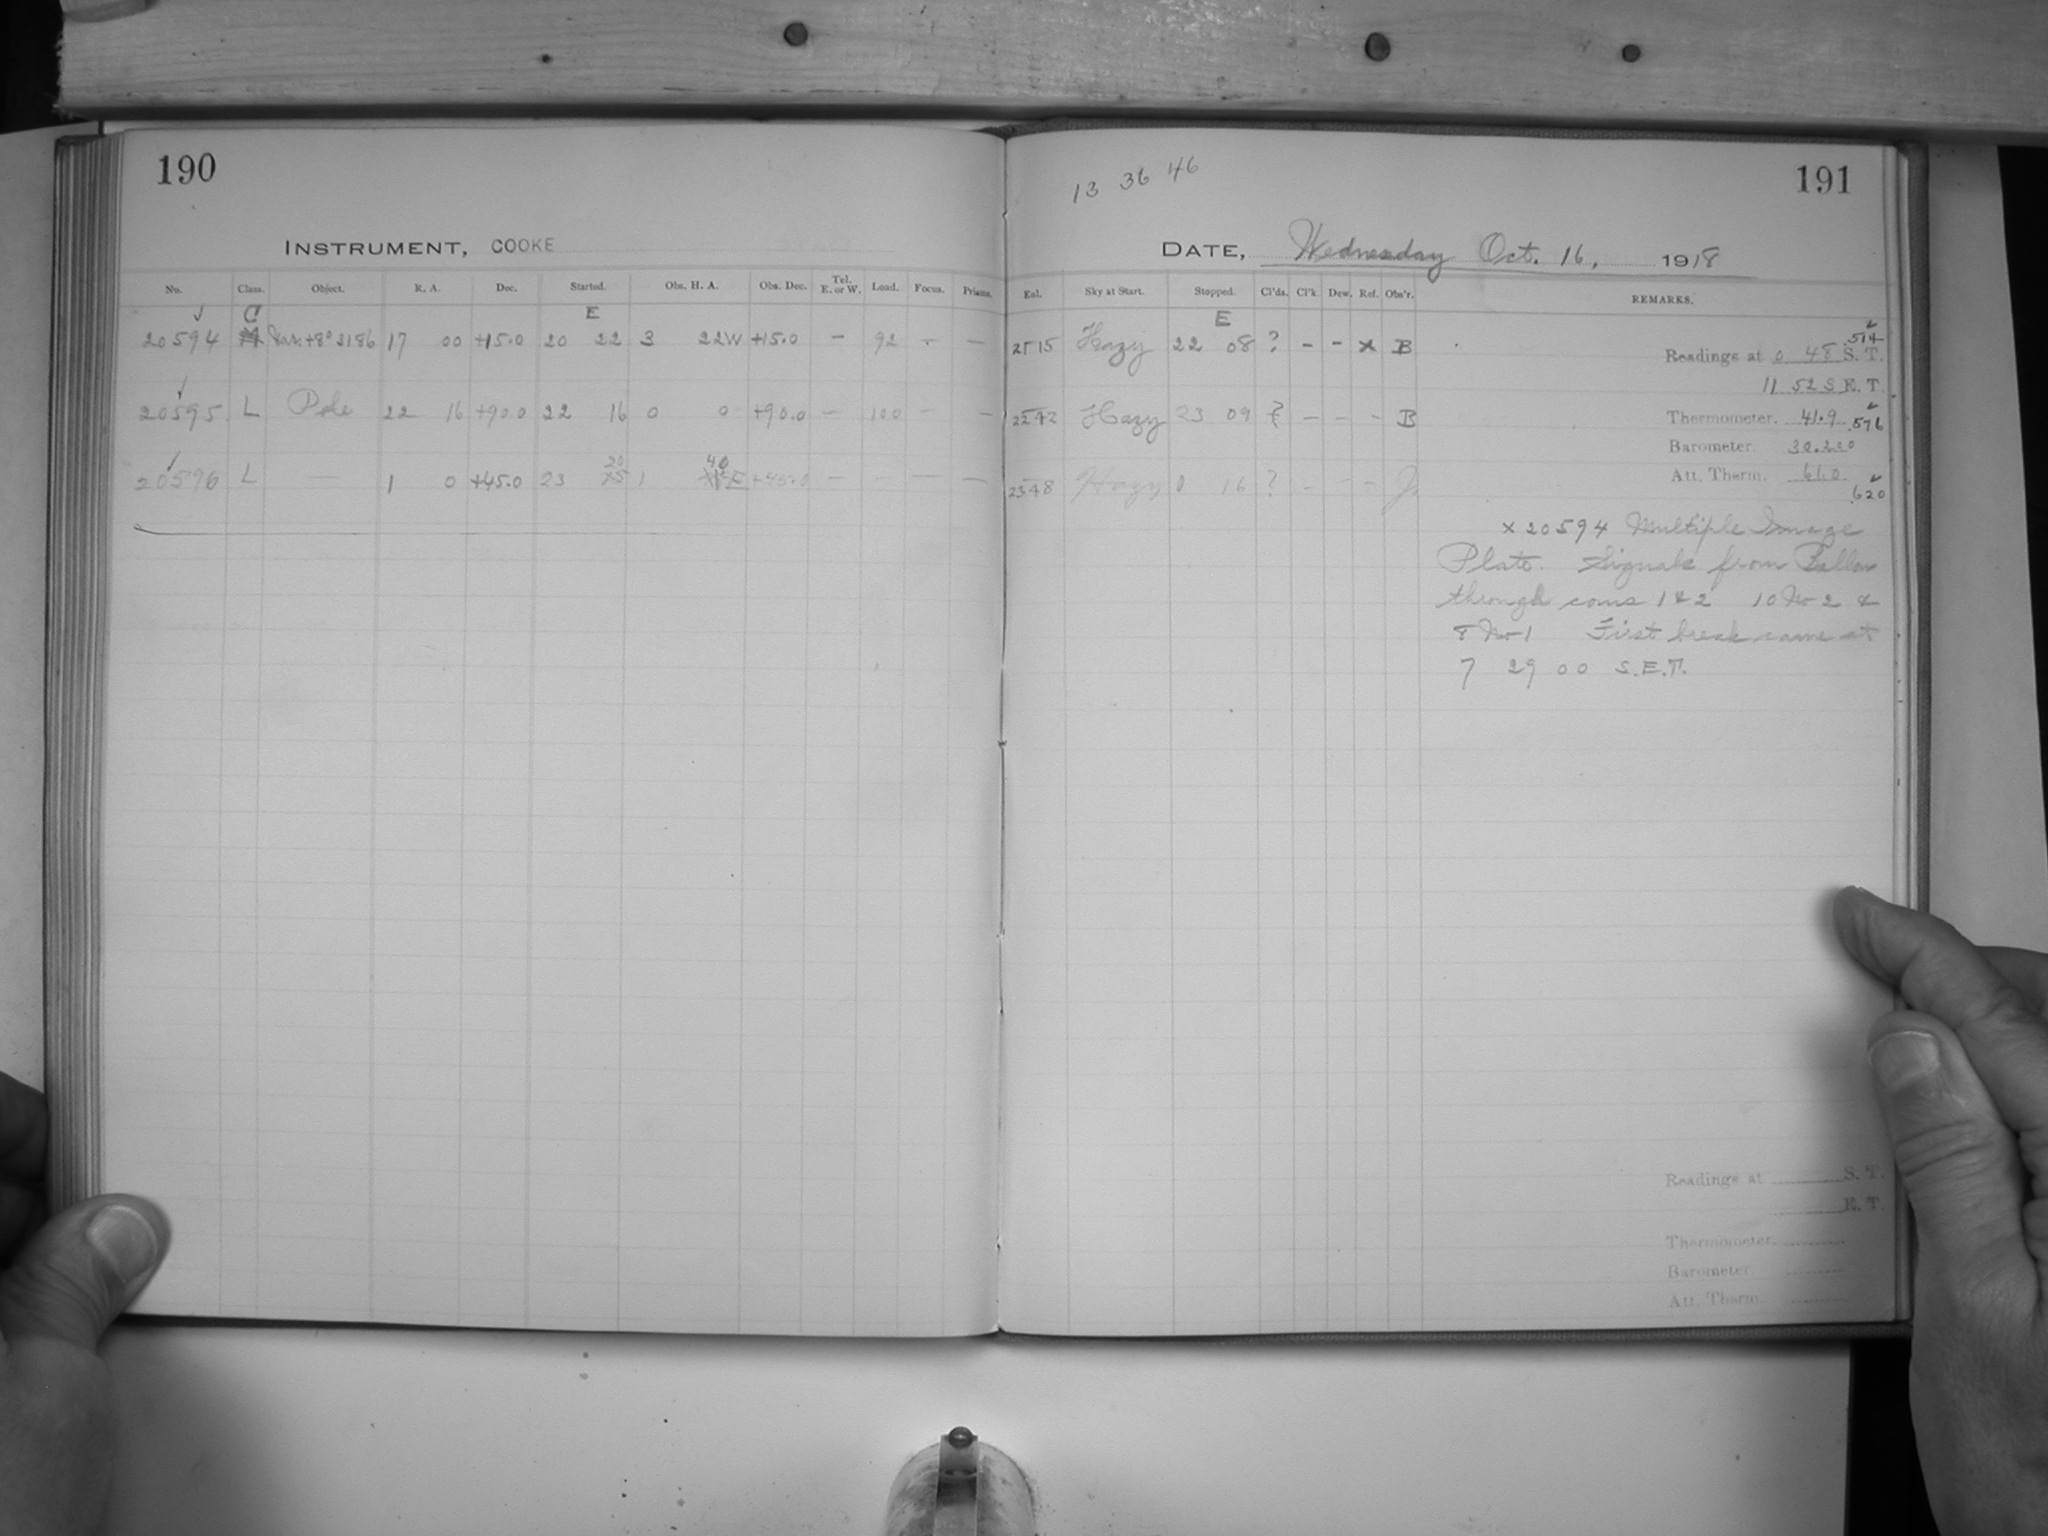 190
INSTRUMENT, COOKE
No. Class. Object. R. A. Dec. Started. Obs. H. A. Obs. Dec. Tel. E. or W. Load. Focus. Prisms.
C E
20594 +8° 2186 17 00 +15.0 20 22 3 22W +15.0 - 92 - -
20595 L Pole 22 16 +90.0 22 16 0 0 +90.0 - 100 - -
20 40
20596 L - 1 0 +45.0 23 1 +45.0 - - - -
13 36 46
191
DATE, Wednesday Oct. 16, 1918
Ent. Sky at Start. Stopped. Cl'ds. Cl'k. Dew. Ref. Obs'r. REMARKS.
E
2115 Hazy 22 08 ? - - x B
2242 Hazy 23 09 ? - - - B
2348 Hazy 0 16 ? - - - J.
.514
Readings at 0 48 S. T.
11 52 S E. T.
Thermometer. 41.9 .576
Barometer. 30.200
Att. Therm. 61.0
.620
x 20594 Multiple Image
Plate. Signals from Ballon
through coms 1 & 2 10 No 2 &
8 No 1 First break came at
7 29 00 S.E.T.
Readings at S. T.
E. T.
Thermometer.
Barometer.
Att. Therm.